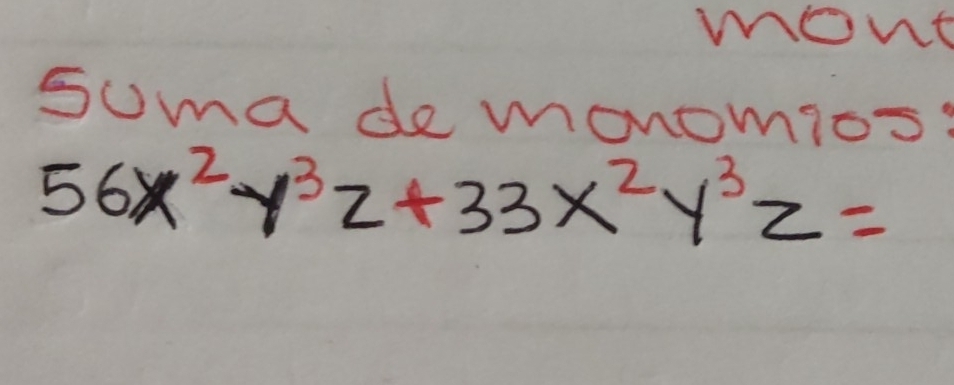 Suma de monomios:
56x²y³z+33x²y³z=